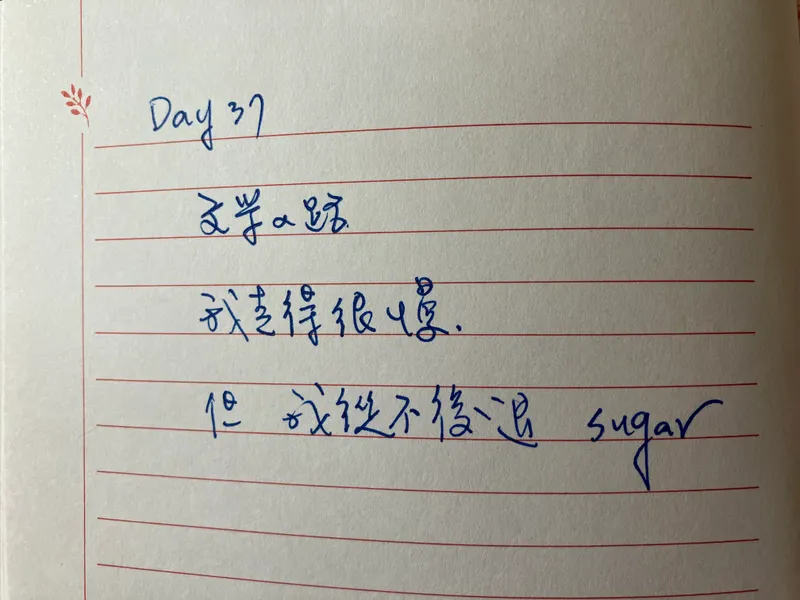 Day 37
文学の路
我走得很慢.
但 我從不後退 sugar